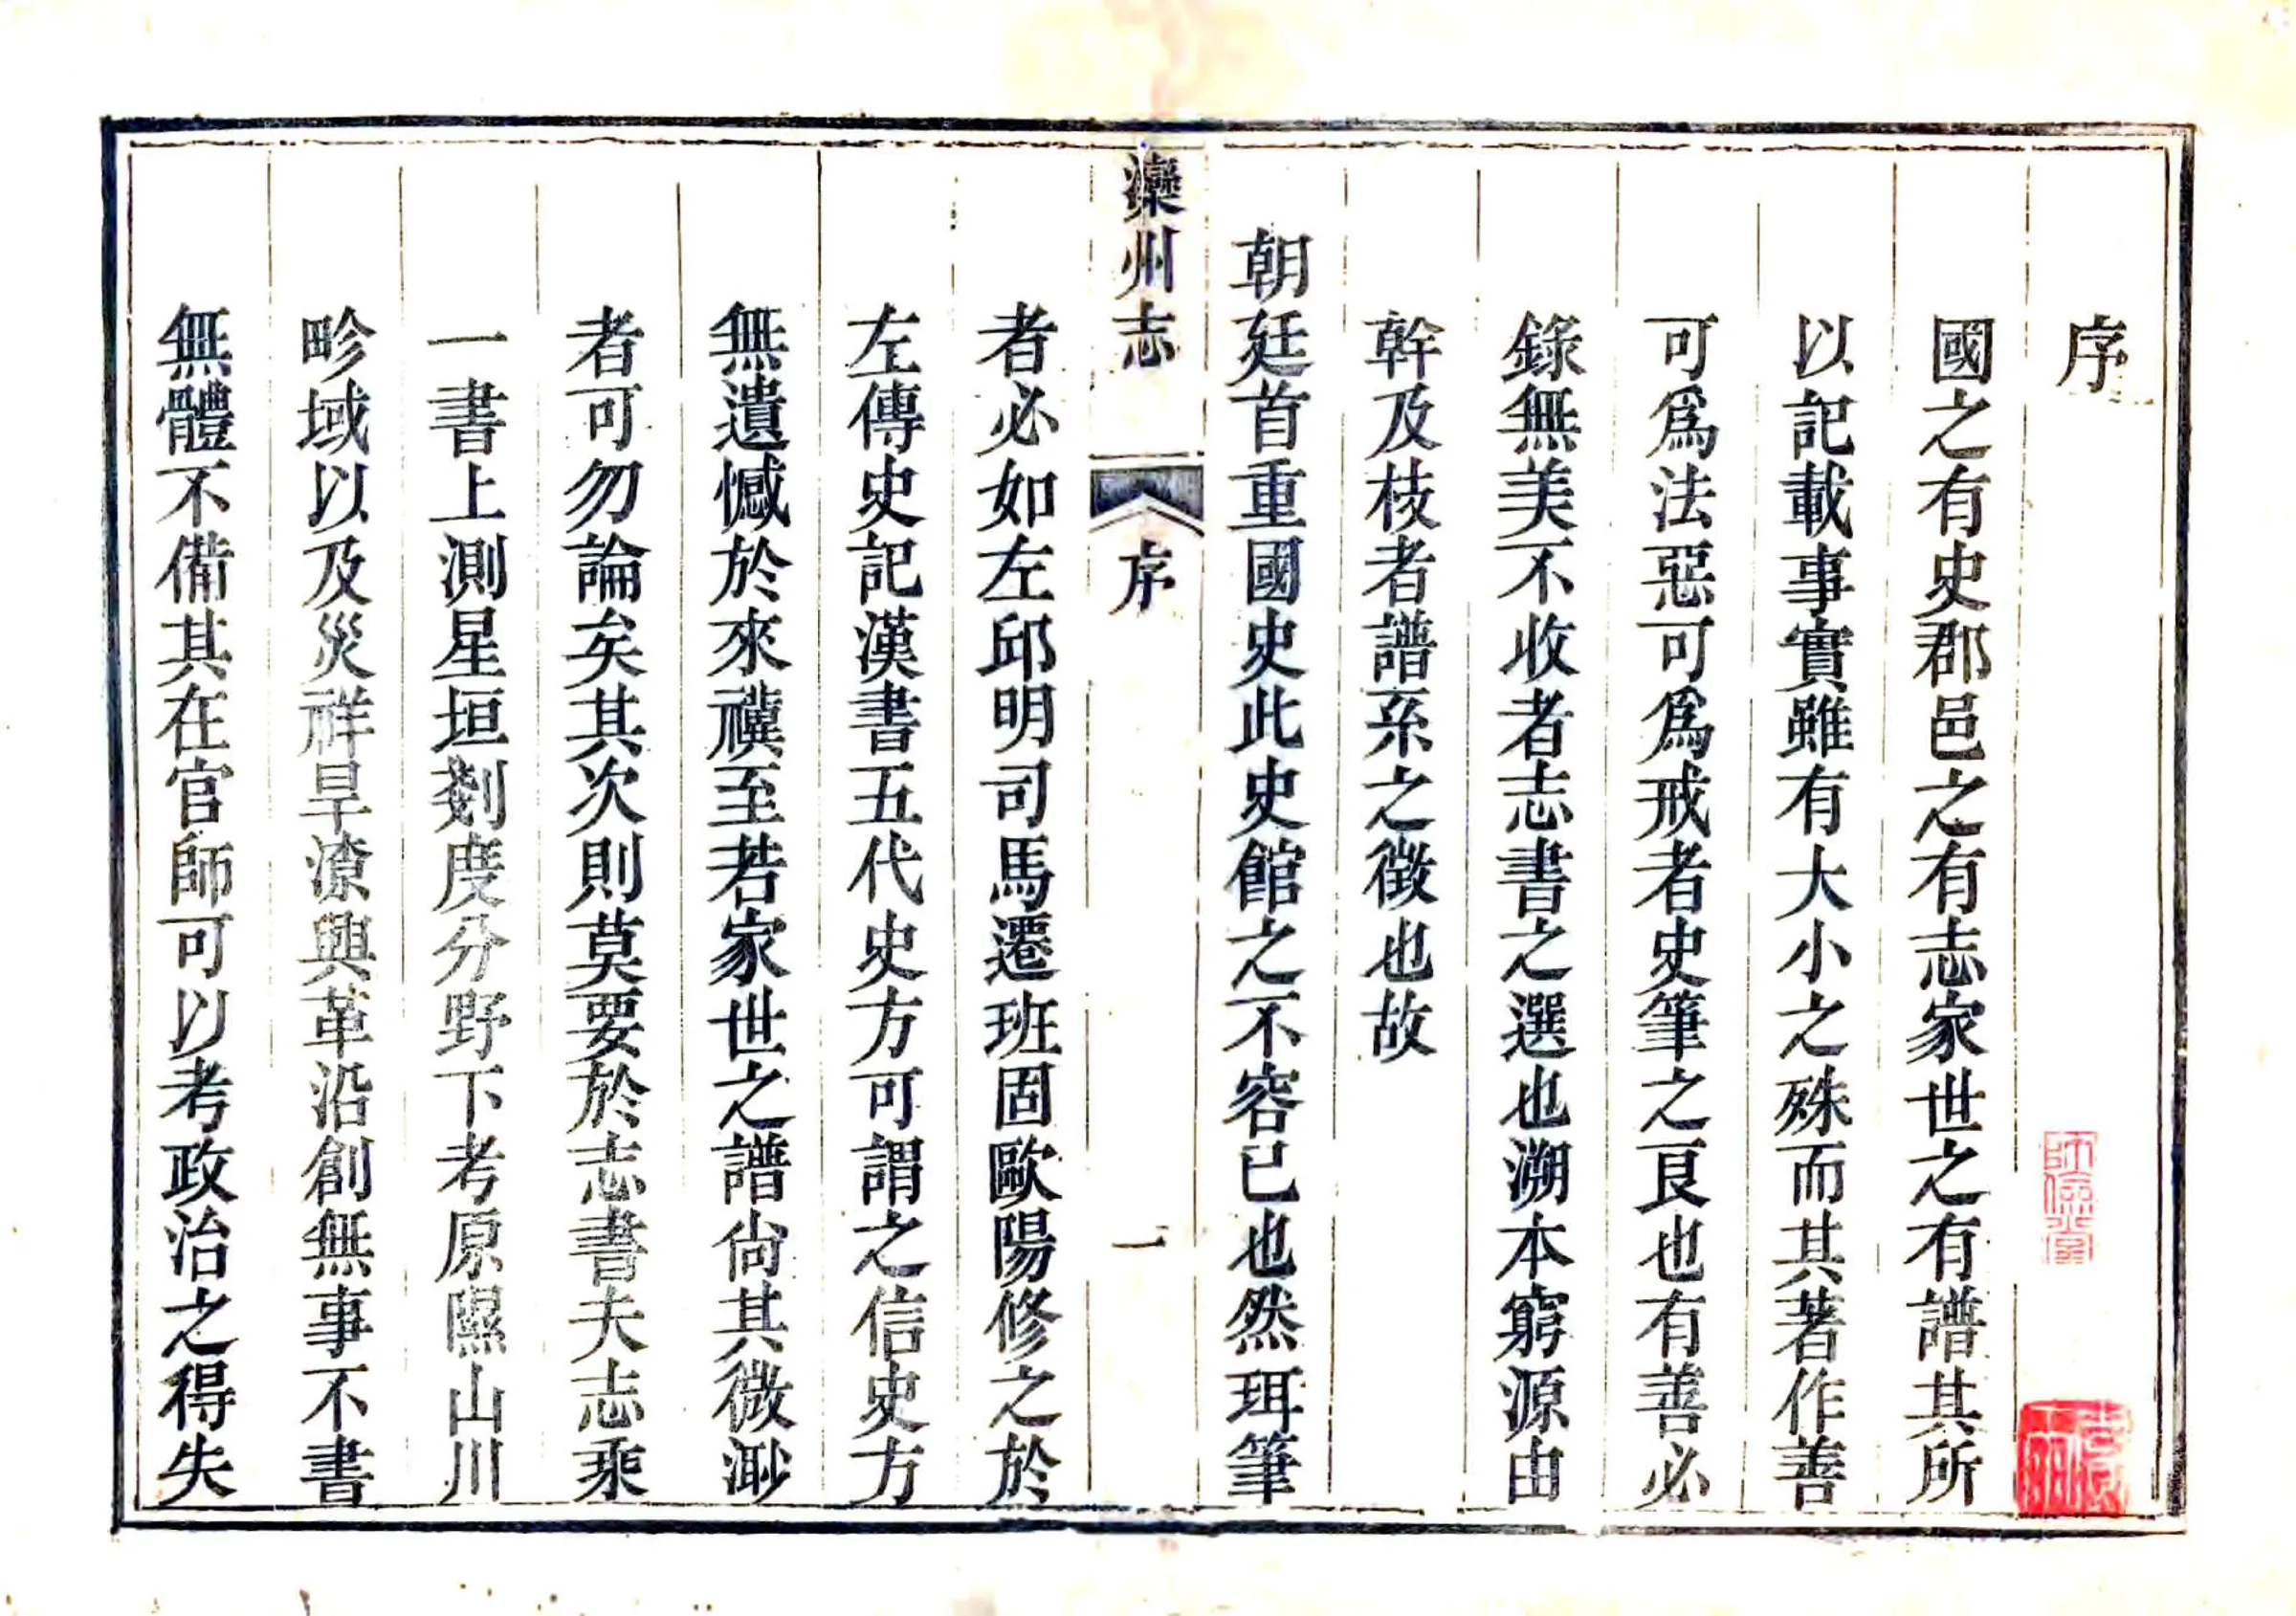 序
國之有史郡邑之有志家世之有譜其所
以記載事實雖有大小之殊而其著作善
可爲法惡可爲戒者史筆之良也有善必
錄無美不收者志書之選也溯本窮源由
幹及枝者譜系之徵也故
朝廷首重國史此史館之不容已也然珥筆
灤州志
序
一
者必如左邱明司馬遷班固歐陽修之於
左傳史記漢書五代史方可謂之信史方
無遺憾於來禩至若家世之譜尚其微渺
者可勿論矣其次則莫要於志書夫志乘
一書上測星垣剡度分野下考原隰山川
畛域以及災祥旱潦興革沿創無事不書
無體不備其在官師可以考政治之得失
師儉堂